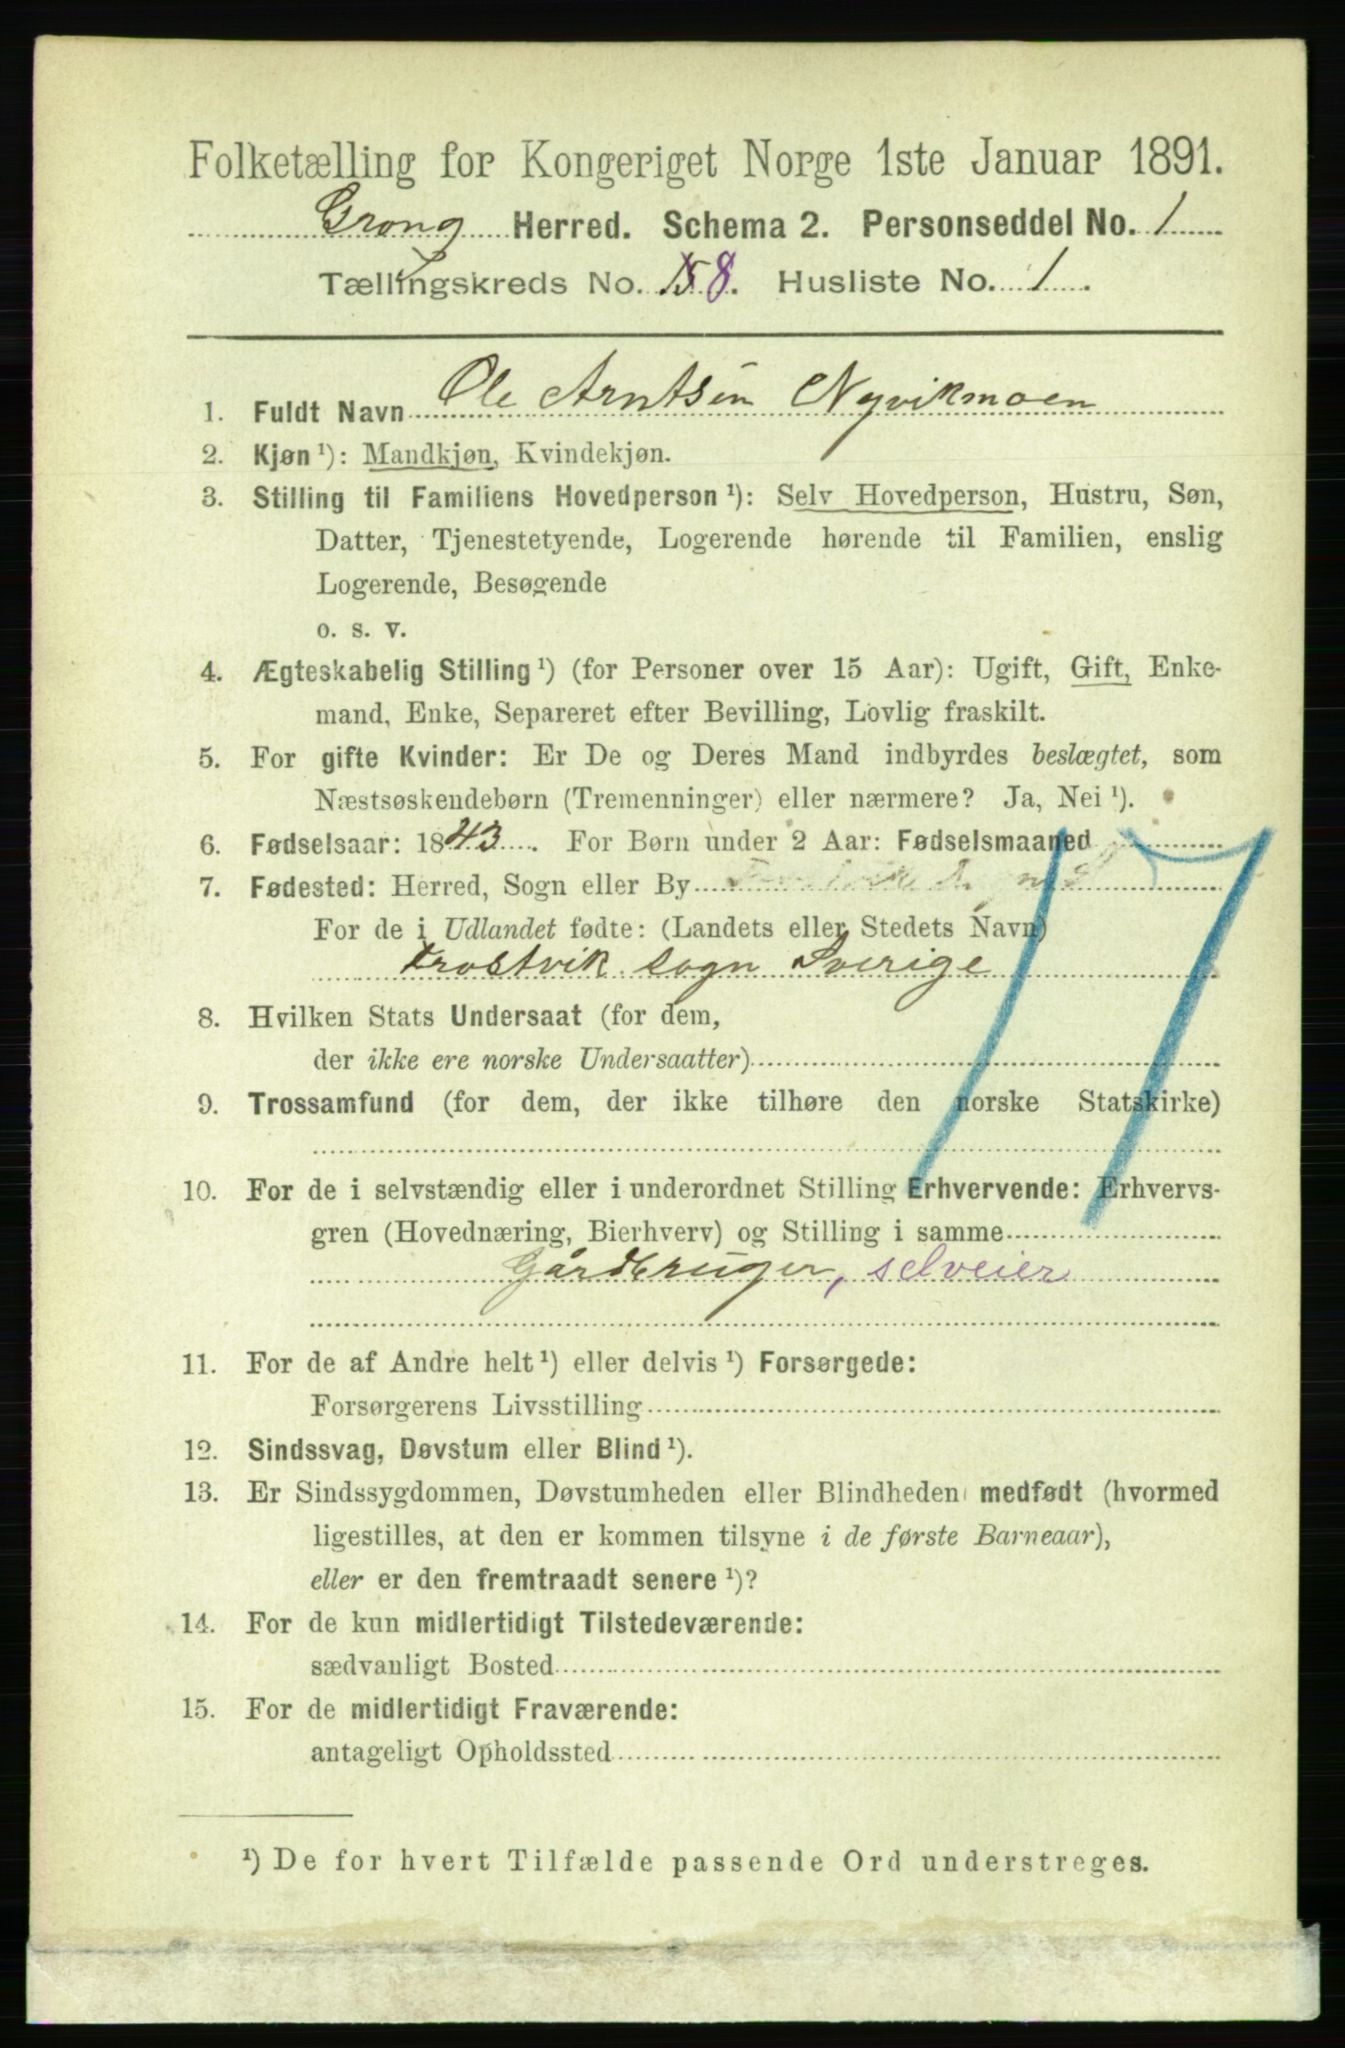 Folketælling for Kongeriget Norge 1ste Januar 1891.
Grong Herred. Schema 2. Personseddel No. 1
Tællingskreds No. 8. Husliste No. 1.
1. Fuldt Navn Ole Arntsen Nyvikmoen
2. Kjøn ¹): Mandkjøn, Kvindekjøn.
3. Stilling til Familiens Hovedperson ¹): Selv Hovedperson, Hustru, Søn,
Datter, Tjenestetyende, Logerende hørende til Familien, enslig
Logerende, Besøgende
o. s. v.
4. Ægteskabelig Stilling ¹) (for Personer over 15 Aar): Ugift, Gift, Enke-
mand, Enke, Separeret efter Bevilling, Lovlig fraskilt.
5. For gifte Kvinder: Er De og Deres Mand indbyrdes beslægtet, som
Næstsøskendebørn (Tremenninger) eller nærmere? Ja, Nei ¹).
6. Fødselsaar: 1843. For Børn under 2 Aar: Fødselsmaaned
7. Fødested: Herred, Sogn eller By
For de i Udlandet fødte: (Landets eller Stedets Navn)
Frostvik sogn Sverige
8. Hvilken Stats Undersaat (for dem,
der ikke ere norske Undersaatter)
9. Trossamfund (for dem, der ikke tilhøre den norske Statskirke)
10. For de i selvstændig eller i underordnet Stilling Erhvervende: Erhvervs-
gren (Hovednæring, Bierhverv) og Stilling i samme
Gårdbruger, selveier
11. For de af Andre helt ¹) eller delvis ¹) Forsørgede:
Forsørgerens Livsstilling
12. Sindssvag, Døvstum eller Blind ¹).
13. Er Sindssygdommen, Døvstumheden eller Blindheden medfødt (hvormed
ligestilles, at den er kommen tilsyne i de første Barneaar),
eller er den fremtraadt senere ¹)?
14. For de kun midlertidigt Tilstedeværende:
sædvanligt Bosted
15. For de midlertidigt Fraværende:
antageligt Opholdssted
¹) De for hvert Tilfælde passende Ord understreges.